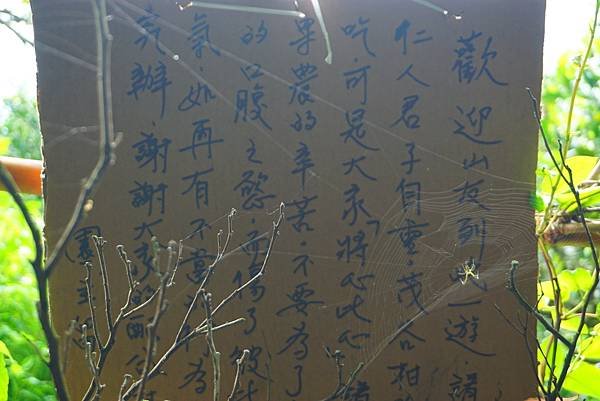 歡迎山友到此一遊、請
仁人君子自重、茂谷柑
吃、可是大家「將心比心」
果農的辛苦、不要為了
的口腹之慾、而傷了彼
氣、如再有不
究辦、謝謝大家的
園主